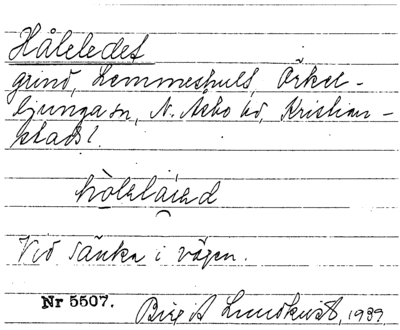 Håleledet
grind, Lemmeshult, Örkel-
ljunga sn, N. Åsbo hd, Kristian-
stads l.
hòleláied
Vid sänka i vägen.
Nr 5507. Birgit Lundkvist, 1939.